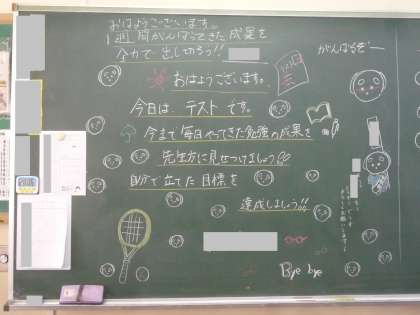 おはようございます。
1週間がんばってきた成果を
全力で出し切ろう!!
がんばるぞー
おはようございます。
今日は、テストです。
今まで毎日やってきた勉強の成果を
先生方に見せつけましょう!!
自分で立てた目標を
達成しましょう!!
Bye bye